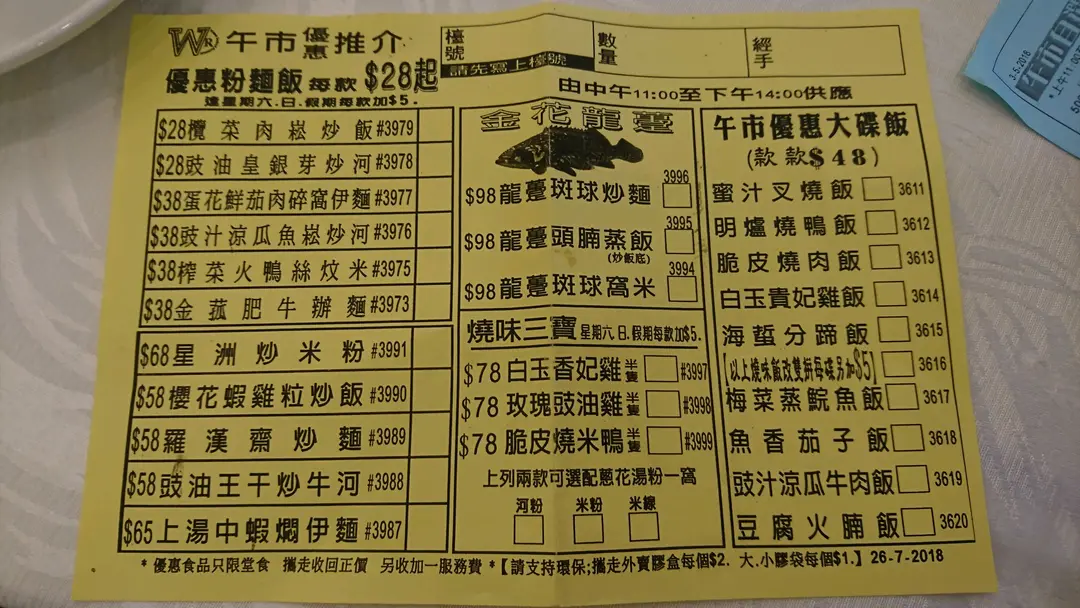 WR 午市優惠推介
優惠粉麵飯 每款 $28起
逢星期六.日.假期每款加$5.
檯號
請先寫上檯號
數量
經手
由中午11:00至下午14:00供應
$28欖菜肉崧炒飯#3979
$28豉油皇銀芽炒河#3978
$38蛋花鮮茄肉碎窩伊麵#3977
$38豉汁涼瓜魚崧炒河#3976
$38榨菜火鴨絲炆米#3975
$38金菰肥牛辦麵#3973
$68星洲炒米粉#3991
$58櫻花蝦雞粒炒飯#3990
$58羅漢齋炒麵#3989
$58豉油王干炒牛河#3988
$65上湯中蝦燜伊麵#3987
金花龍躉
$98龍躉斑球炒麵 3996
$98龍躉頭腩蒸飯 3995
(炒飯底)
$98龍躉斑球窩米 3994
燒味三寶 星期六.日.假期每款加$5.
$78白玉香妃雞半隻 #3997
$78玫瑰豉油雞半隻 #3998
$78脆皮燒米鴨半隻 #3999
上列兩款可選配蔥花湯粉一窩
河粉 米粉 米線
午市優惠大碟飯
(款款$48)
蜜汁叉燒飯 3611
明爐燒鴨飯 3612
脆皮燒肉飯 3613
白玉貴妃雞飯 3614
海蜇分蹄飯 3615
[以上燒味飯改雙拼每碟另加$5] 3616
梅菜蒸鯇魚飯 3617
魚香茄子飯 3618
豉汁涼瓜牛肉飯 3619
豆腐火腩飯 3620
*優惠食品只限堂食 攜走收回正價 另收加一服務費*【請支持環保;攜走外賣膠盒每個$2. 大.小膠袋每個$1.】26-7-2018
3-5-2018